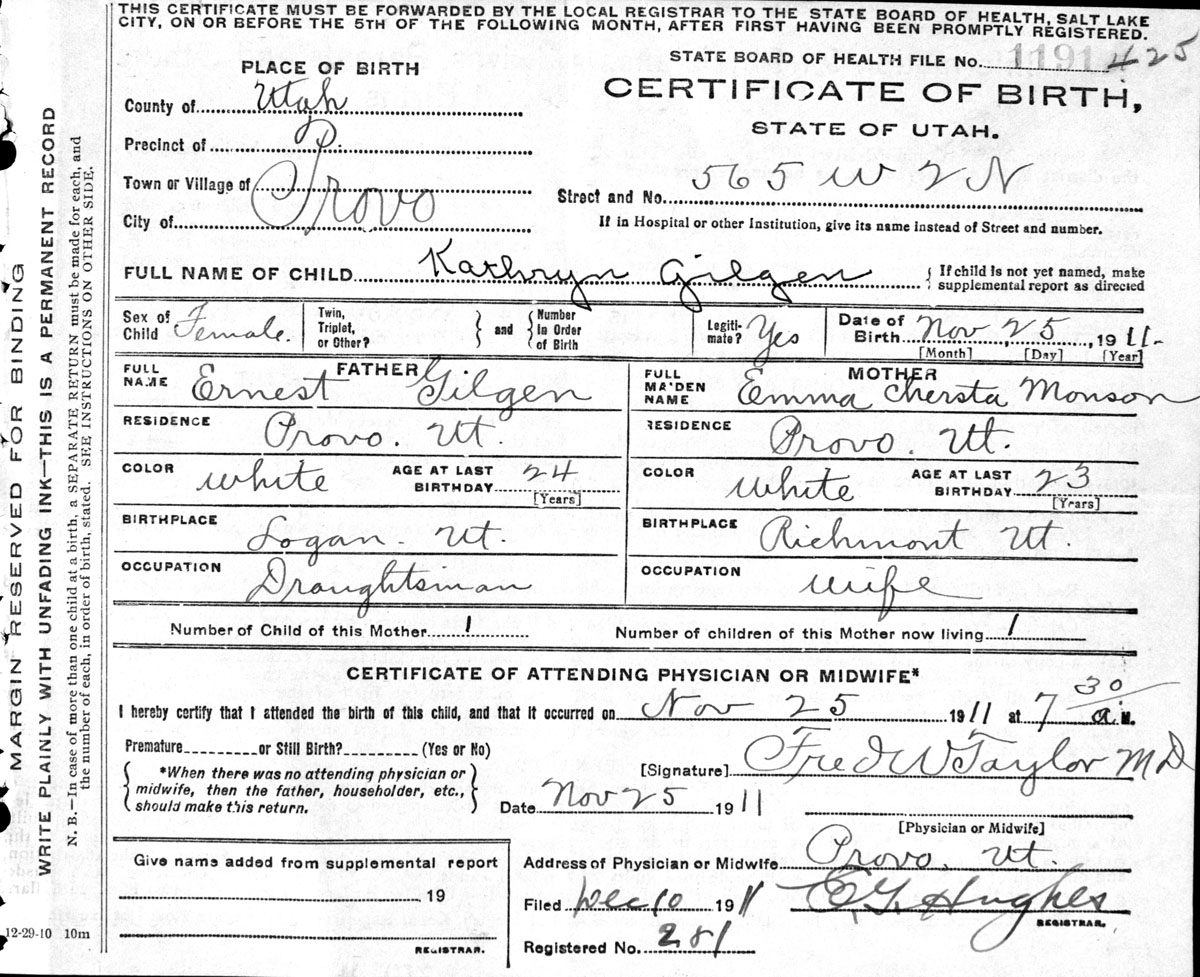 THIS CERTIFICATE MUST BE FORWARDED BY THE LOCAL REGISTRAR TO THE STATE BOARD OF HEALTH, SALT LAKE
CITY, ON OR BEFORE THE 5TH OF THE FOLLOWING MONTH, AFTER FIRST HAVING BEEN PROMPTLY REGISTERED.
MARGIN RESERVED FOR BINDING
WRITE PLAINLY WITH UNFADING INK—THIS IS A PERMANENT RECORD
N. B.—In case of more than one child at a birth, a SEPARATE RETURN must be made for each, and
the number of each, in order of birth, stated. SEE INSTRUCTIONS ON OTHER SIDE.
STATE BOARD OF HEALTH FILE No. 1191425
PLACE OF BIRTH
CERTIFICATE OF BIRTH,
STATE OF UTAH.
County of Utah
Precinct of P.
Town or Village of
City of Provo
Street and No. 565 W 2 N
If in Hospital or other Institution, give its name instead of Street and number.
FULL NAME OF CHILD Kathryn Gilgen { If child is not yet named, make
supplemental report as directed
Sex of Child Female. Twin, Triplet, or Other? } and { Number In Order of Birth Legiti-mate? Yes Date of Birth Nov 25, 1911.
[Month] [Day] [Year]
FATHER MOTHER
FULL NAME Ernest Gilgen FULL MAIDEN NAME Emma Chersta Monson
RESIDENCE Provo. Ut. RESIDENCE Provo. Ut.
COLOR White AGE AT LAST BIRTHDAY 24 [Years] COLOR White AGE AT LAST BIRTHDAY 23 [Years]
BIRTHPLACE Logan. Ut. BIRTHPLACE Richmont Ut.
OCCUPATION Draughtsman OCCUPATION Wife
Number of Child of this Mother 1 Number of children of this Mother now living 1
CERTIFICATE OF ATTENDING PHYSICIAN OR MIDWIFE*
I hereby certify that I attended the birth of this child, and that it occurred on Nov 25 1911 at 7 30 a. M.
Premature or Still Birth? (Yes or No)
{ *When there was no attending physician or
midwife, then the father, householder, etc.,
should make this return. }
[Signature] Fred W Taylor M D
Date Nov 25 1911
[Physician or Midwife]
Give name added from supplemental report
19
REGISTRAR.
Address of Physician or Midwife Provo. Ut.
Filed Dec 10 1911 E G Hughes
REGISTRAR.
Registered No. 281
12-29-10 10m